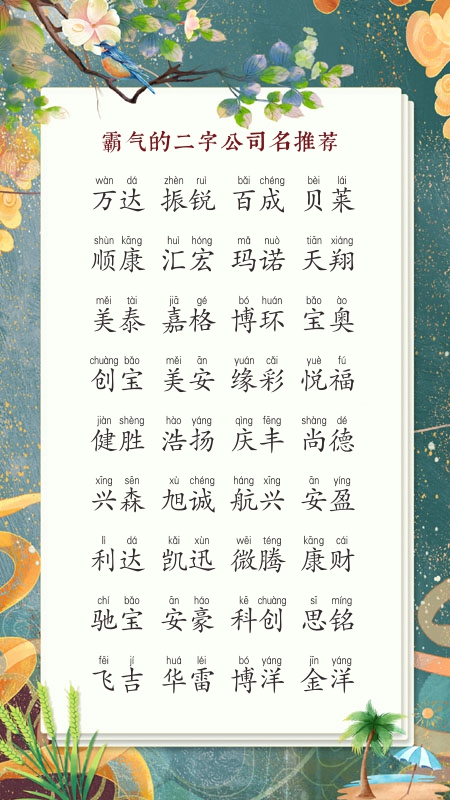 霸气的二字公司名推荐
wàn dá zhèn ruì bǎi chéng bèi lái
万达 振锐 百成 贝莱
shùn kāng huì hóng mǎ nuò tiān xiáng
顺康 汇宏 玛诺 天翔
měi tài jiā gé bó huán bǎo ào
美泰 嘉格 博环 宝奥
chuàng bǎo měi ān yuán cǎi yuè fú
创宝 美安 缘彩 悦福
jiàn shèng hào yáng qìng fēng shàng dé
健胜 浩扬 庆丰 尚德
xīng sēn xù chéng háng xīng ān yíng
兴森 旭诚 航兴 安盈
lì dá kǎi xùn wēi téng kāng cái
利达 凯迅 微腾 康财
chí bǎo ān háo kē chuàng sī míng
驰宝 安豪 科创 思铭
fēi jí huá léi bó yáng jīn yáng
飞吉 华雷 博洋 金洋